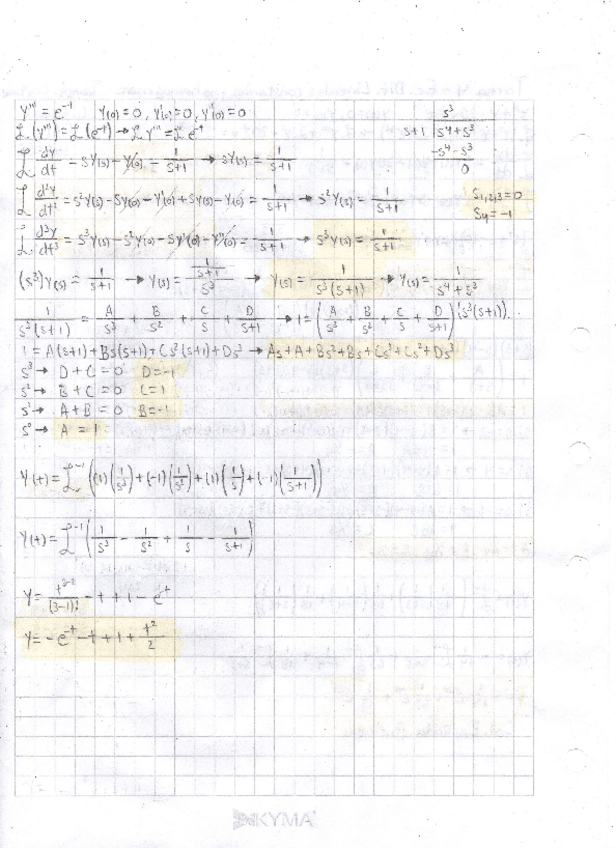 y''' = e^-t   Y(0)=0, Y'(0)=0, Y''(0)=0
ℒ(y''') = ℒ(e^-t) → ℒ y''' = ℒ e^-t
s³
s+1 | s⁴+s³
-s⁴-s³
0
ℒ dy/dt = sY(s) - Y(0) = 1/(s+1) → sY(s) = 1/(s+1)
ℒ d²y/dt² = s²Y(s) - sY(0) - Y'(0) + sY(s) - Y(0) = 1/(s+1) → s²Y(s) = 1/(s+1)
S1,2,3 = 0
S4 = -1
ℒ d³y/dt³ = s³Y(s) - s²Y(0) - sY'(0) - Y''(0) = 1/(s+1) → s³Y(s) = 1/(s+1)
(s³)Y(s) = 1/(s+1) → Y(s) = (1/(s+1))/s³ → Y(s) = 1/(s³(s+1)) → Y(s) = 1/(s⁴+s³)
1/(s³(s+1)) = A/s³ + B/s² + C/s + D/(s+1) → 1 = (A/s³ + B/s² + C/s + D/(s+1))(s³(s+1))
1 = A(s+1) + Bs(s+1) + Cs²(s+1) + Ds³ → As+A+Bs²+Bs+Cs³+Cs²+Ds³
s³ → D+C = 0   D=-1
s² → B+C = 0   C=1
s¹ → A+B = 0   B=-1
s⁰ → A = 1
Y(t) = ℒ⁻¹((1)(1/s³) + (-1)(1/s²) + (1)(1/s) + (-1)(1/(s+1)))
Y(t) = ℒ⁻¹(1/s³ - 1/s² + 1/s - 1/(s+1))
Y = t^3-1/(3-1)! - t + 1 - e^-t
Y = -e^-t - t + 1 + t²/2
KYMA